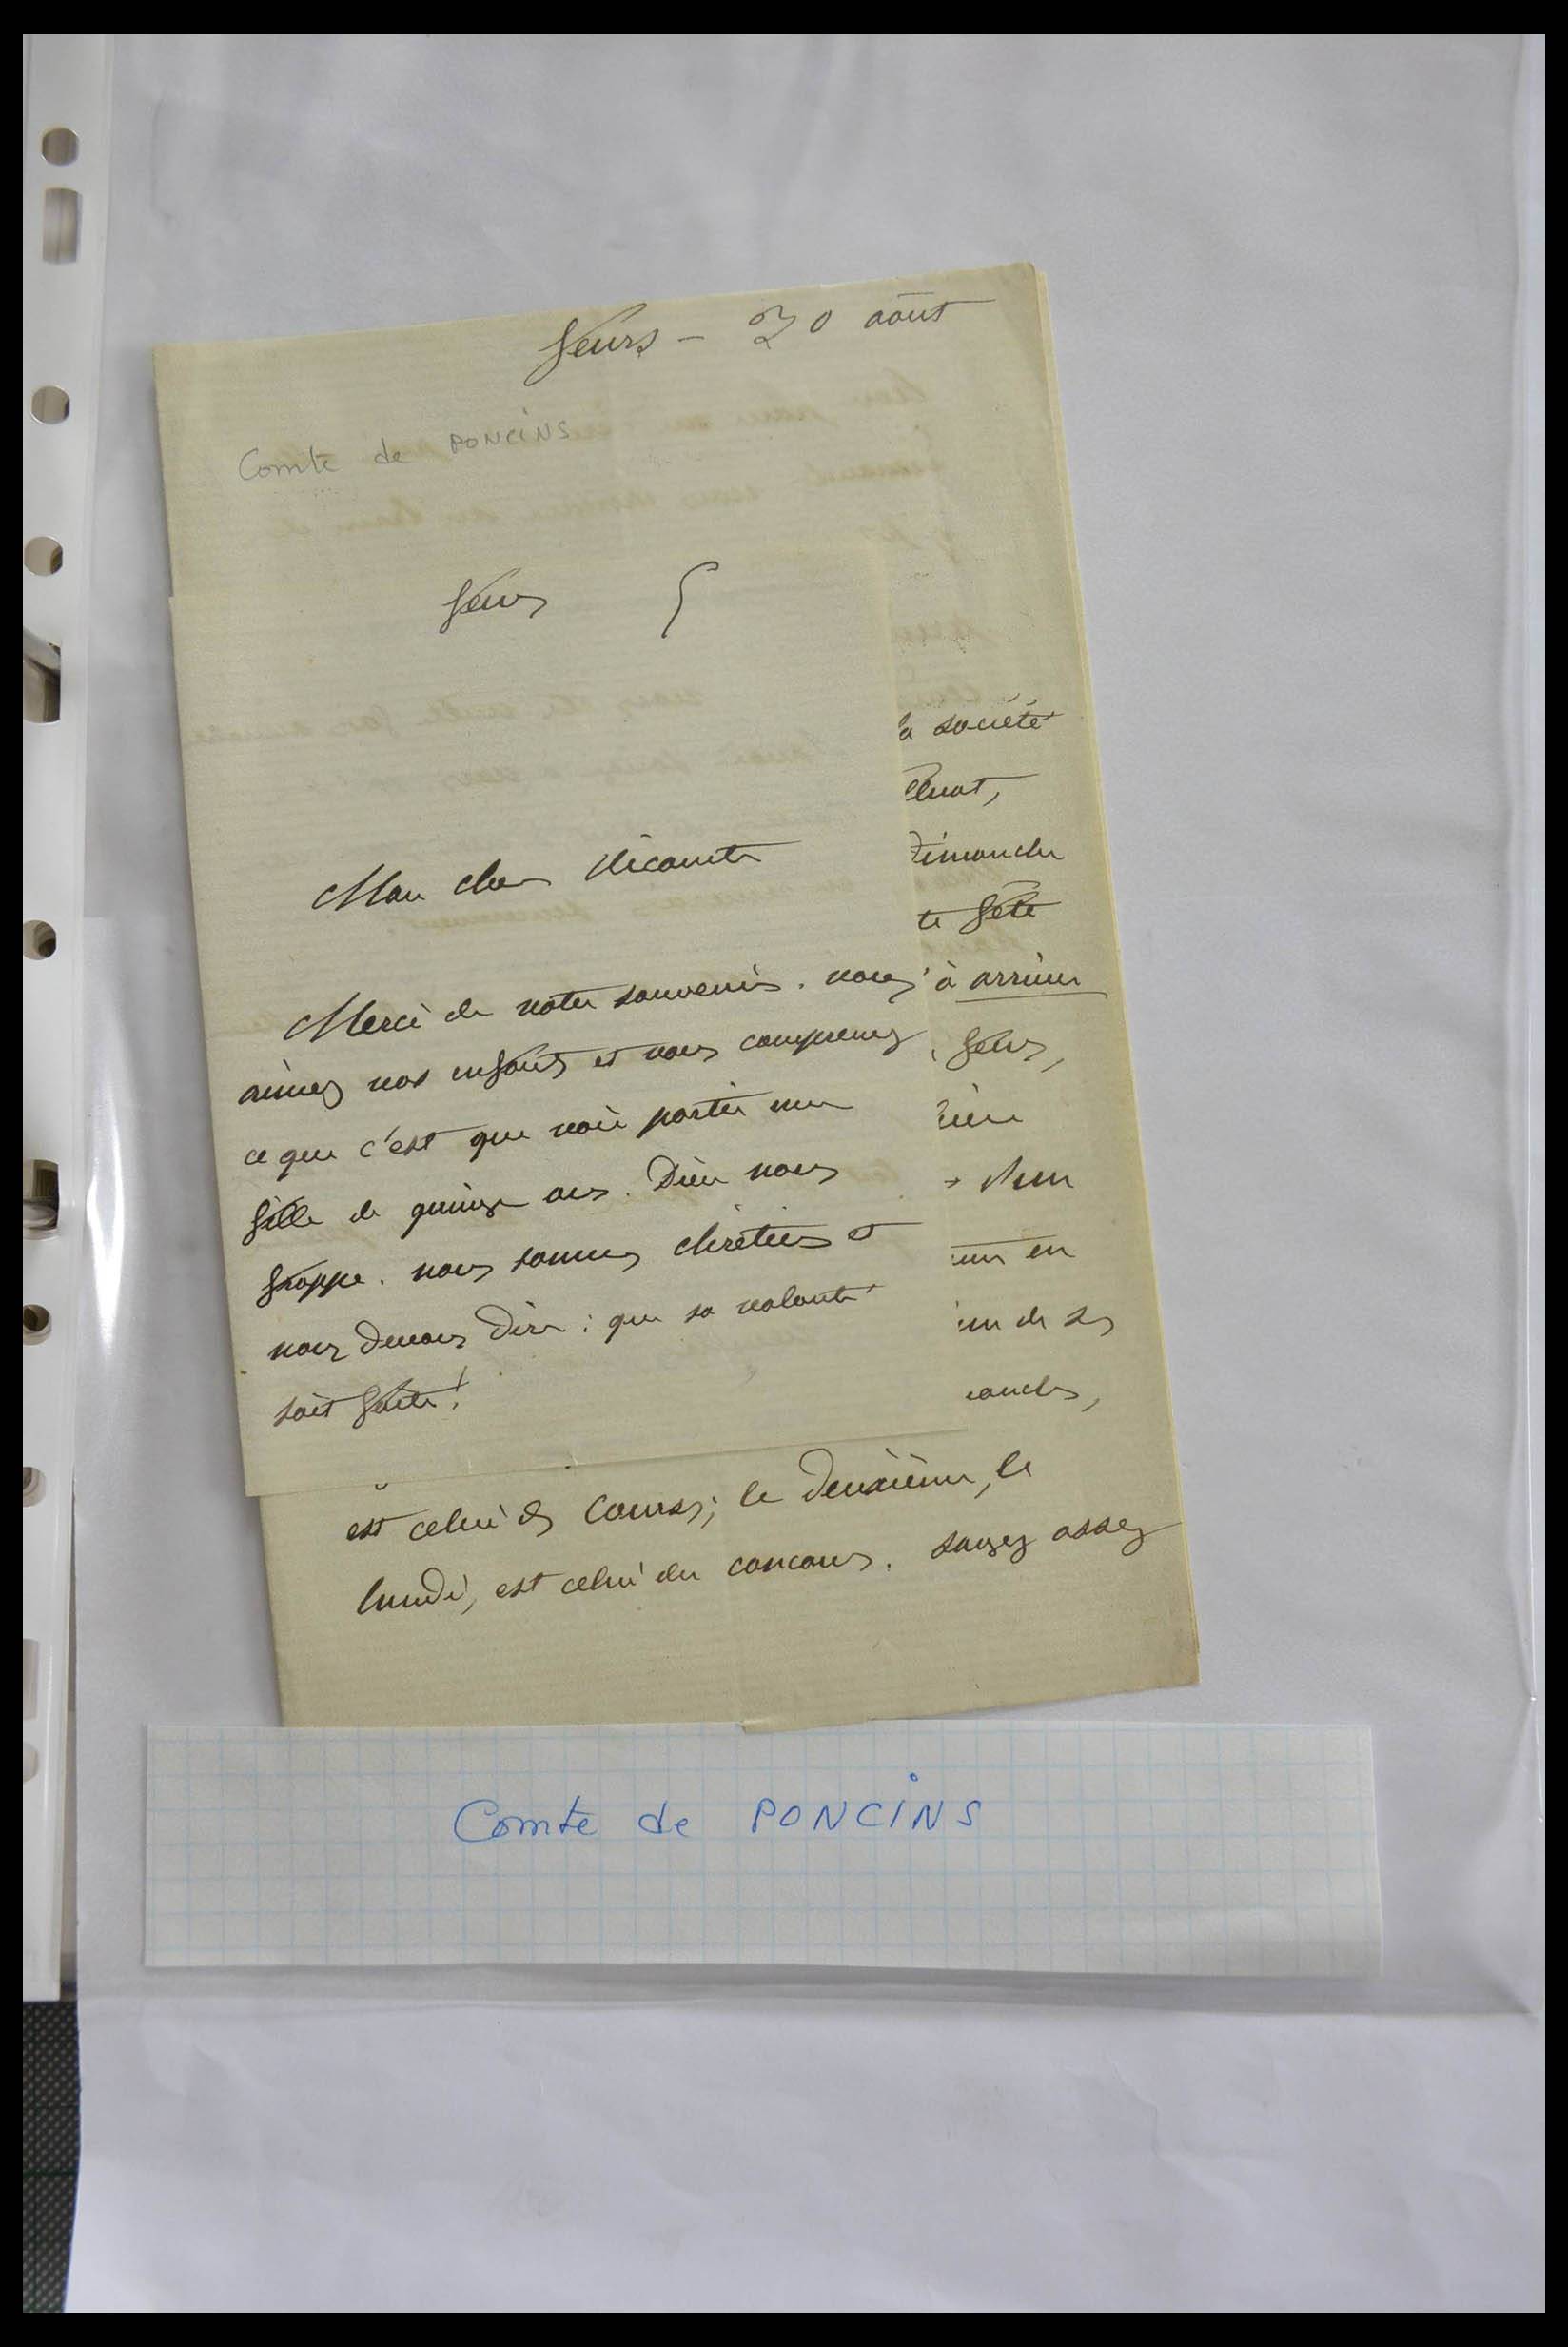 feurs - 30 août
Comte de PONCINS
feurs 5
Mon cher Vicomte
Merci de votre souvenir. vous
aimez vos enfants et vous comprenez
ce que c'est que voir partir une
fille de quinze ans. Dieu nous
frappe. nous sommes chrétiens et
nous devons dire : que sa volonté
soit faite !
la société
Dimanche
te fête
à arriver
feurs,
en
de ses
est celui des courses ; le deuxième, le
lundi, est celui du concours. soyez assez
Comte de PONCINS